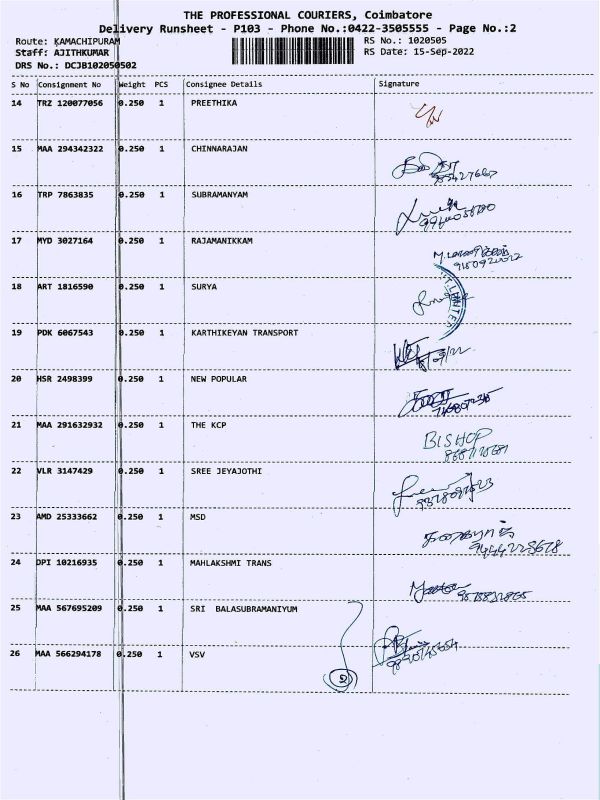 THE PROFESSIONAL COURIERS, Coimbatore
Delivery Runsheet - P103 - Phone No.:0422-3505555 - Page No.:2
Route: KAMACHIPURAM RS No.: 1020505
Staff: AJITHKUMAR RS Date: 15-Sep-2022
DRS No.: DCJB102050502
S No Consignment No Weight PCS Consignee Details Signature
14 TRZ 120077056 0.250 1 PREETHIKA
15 MAA 294342322 0.250 1 CHINNARAJAN
16 TRP 7863835 0.250 1 SUBRAMANYAM
17 MYD 3027164 0.250 1 RAJAMANIKKAM
18 ART 1816590 0.250 1 SURYA
19 PDK 6067543 0.250 1 KARTHIKEYAN TRANSPORT
20 HSR 2498399 0.250 1 NEW POPULAR
21 MAA 291632932 0.250 1 THE KCP BISHOP
22 VLR 3147429 0.250 1 SREE JEYAJOTHI
23 AMD 25333662 0.250 1 MSD
9444228678
24 DPI 10216935 0.250 1 MAHLAKSHMI TRANS
25 MAA 567695209 0.250 1 SRI BALASUBRAMANIYUM
26 MAA 566294178 0.250 1 VSV
2